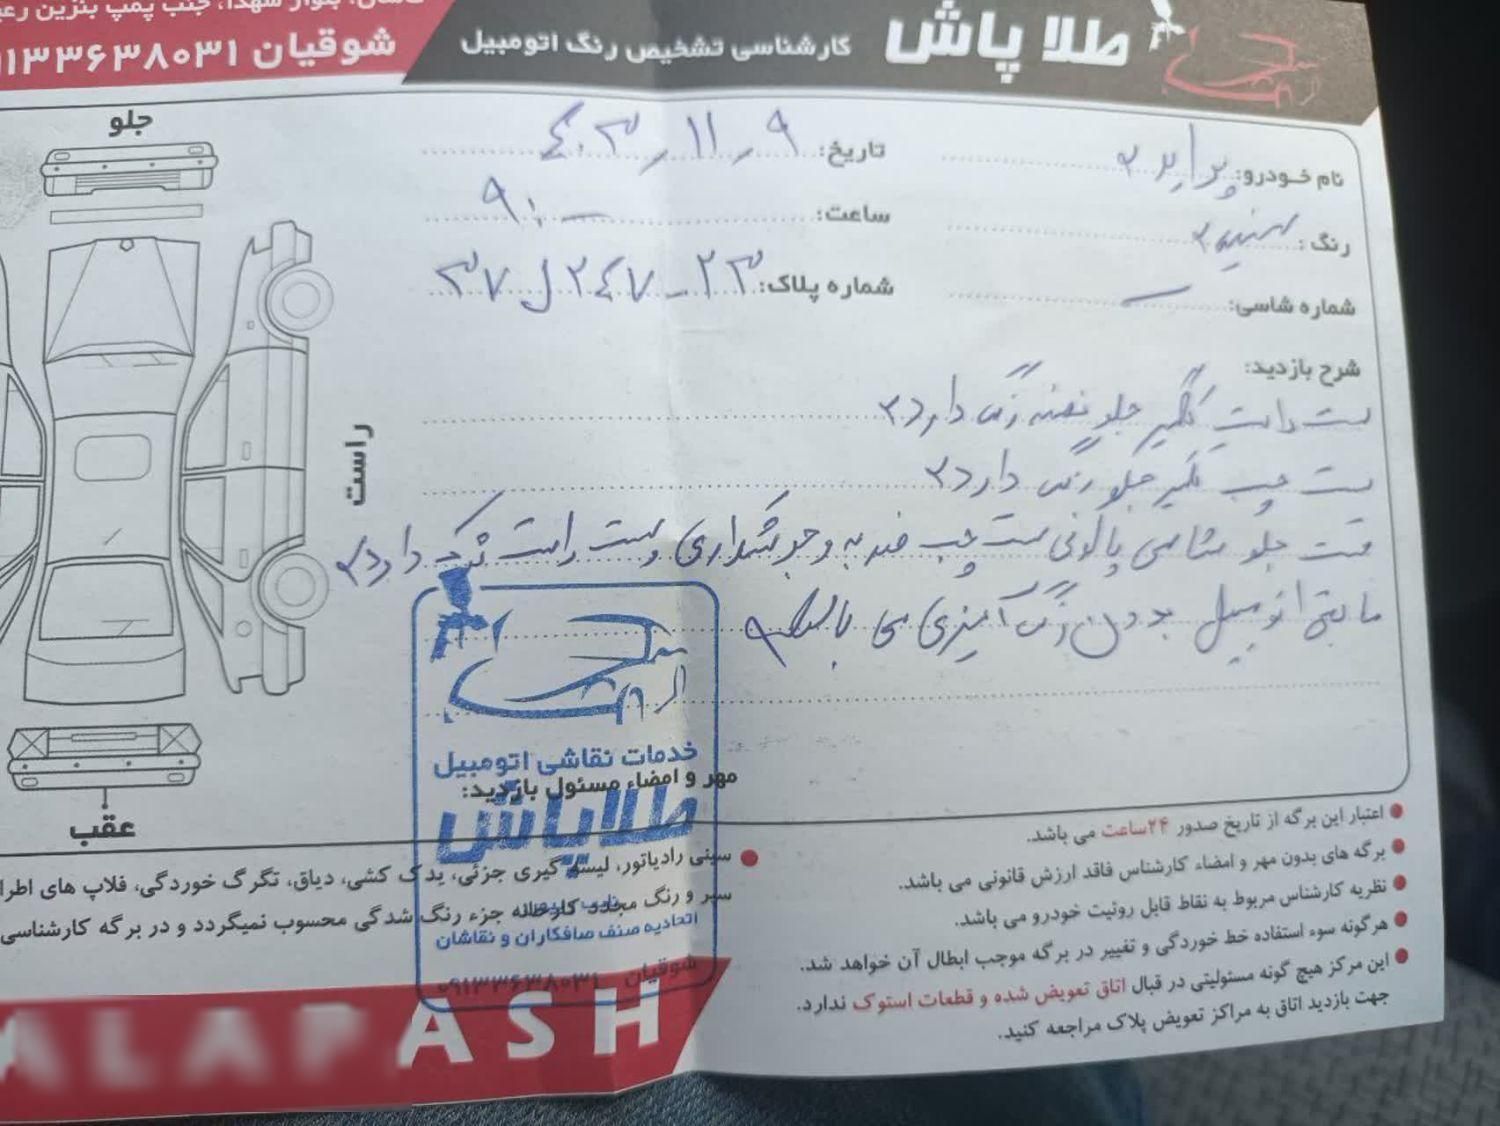 جنب پمپ بنزین
شوقیان ۰۹۱۳۳۶۳۸۰۳۱
طلا پاش
کارشناسی تشخیص رنگ اتومبیل
نام خودرو: پراید
تاریخ: ۴۰۳/۱۱/۹
رنگ: سفید
ساعت: ۹:—
شماره شاسی: —
شماره پلاک: ۲۳ - ۲۴۷ ل ۳۷
شرح بازدید:
ست راست گلگیر جلو نصفه رنگ دارد
ست چپ گلگیر جلو رنگ دارد
قسمت جلو شاسی پالونی ست چپ ضربه و جوشکاری وست راست ترک دارد
مابقی اتومبیل بدون رنگ آمیزی می باشد
جلو
راست
عقب
خدمات نقاشی اتومبیل
طلاپاش
اتحادیه صنف صافکاران و نقاشان
شوقیان ۰۹۱۳۳۶۳۸۰۳۱
مهر و امضاء مسئول بازدید:
اعتبار این برگه از تاریخ صدور ۲۴ساعت می باشد.
برگه های بدون مهر و امضاء کارشناس فاقد ارزش قانونی می باشد.
نظریه کارشناس مربوط به نقاط قابل روئیت خودرو می باشد.
هرگونه سوء استفاده خط خوردگی و تغییر در برگه موجب ابطال آن خواهد شد.
این مرکز هیچ گونه مسئولیتی در قبال اتاق تعویض شده و قطعات استوک ندارد.
جهت بازدید اتاق به مراکز تعویض پلاک مراجعه کنید.
سینی رادیاتور، لیسه گیری جزئی، یدک کشی، دیاق، تگرگ خوردگی، فلاپ های
سپر و رنگ مجدد کارخانه جزء رنگ شدگی محسوب نمیگردد و در برگه کارشناسی
ALAPASH